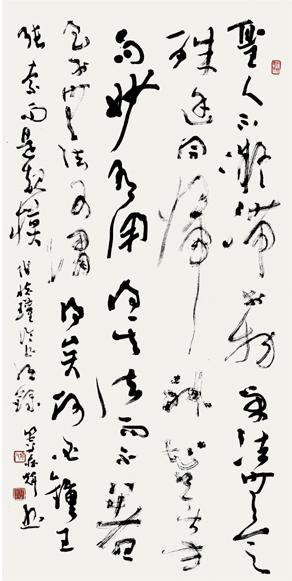 聖人不凝滯於物萬法無定
殊途同歸神智無方
而妙有用得其法而不著
至於無法可謂得矣何必鍾王
張索而是規模